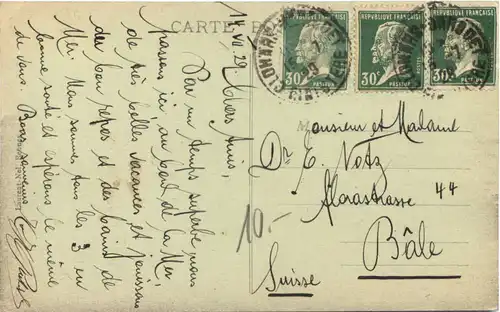 CARTE
14 VII 29. Chers Amis,
Par un temps superbe nous
passons ici au bord de la Mer
de très belles vacances et jouissons
du bon repos et des bains de
Mer. Nous sommes tous les 3 en
bonne santé et espérons le même
de vous. Bons souvenirs
REPUBLIQUE FRANÇAISE
30c
PASTEUR
REPUBLIQUE FRANÇAISE
30c
PASTEUR
REPUBLIQUE FRANÇAISE
30c
PASTEUR
Monsieur et Madame
Dr E. Notz
Florastrasse 44
Bâle
Suisse
10.-